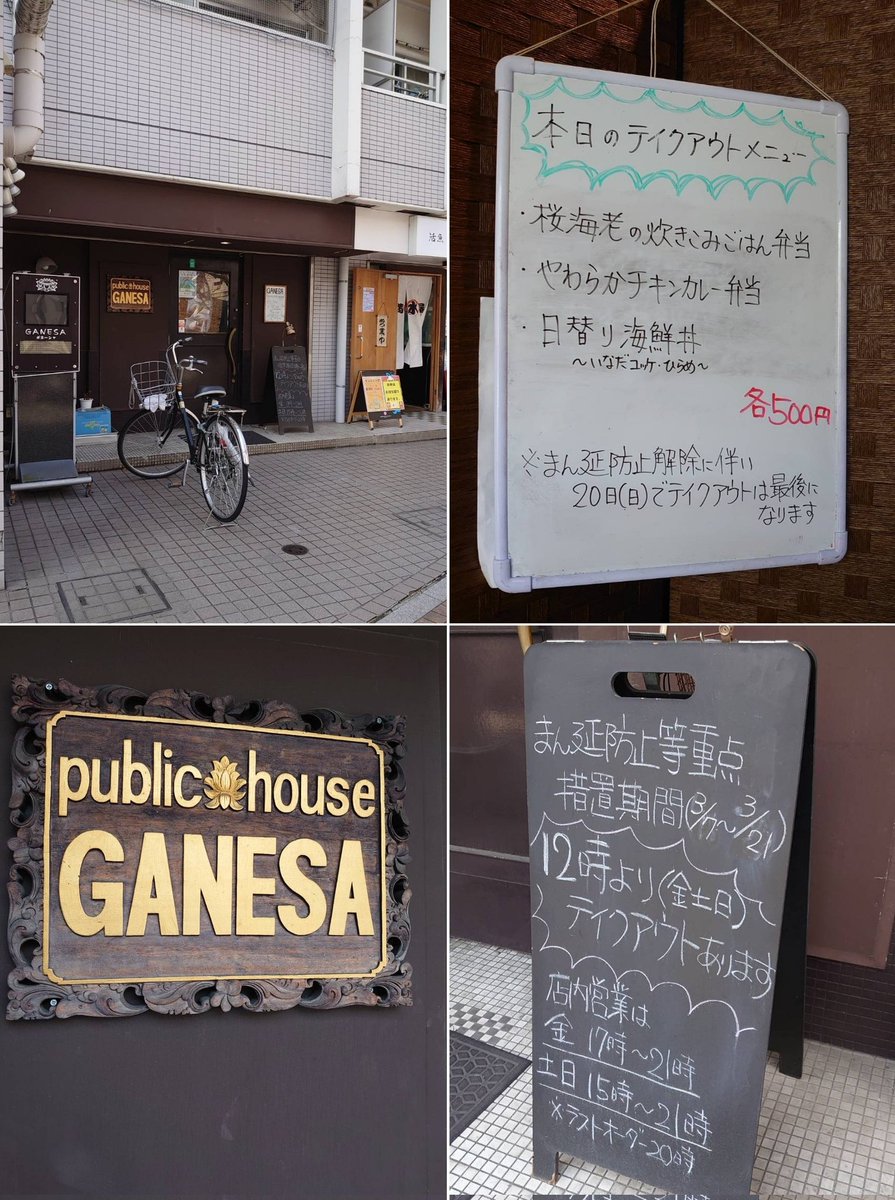 public house
GANESA
GANESA
GANESA
営業中
活魚
本日のテイクアウトメニュー
・桜海老の炊きこみごはん弁当
・やわらかチキンカレー弁当
・日替り海鮮丼
～いなだコッケ・ひらめ～
各500円
※まん延防止解除に伴い
20日(日)でテイクアウトは最後に
なります
public house
GANESA
まん延防止等重点
措置期間(3/7～3/21)
12時より(金土日)
テイクアウトあります
店内営業は
金 17時～21時
土日 15時～21時
※ラストオーダー20時